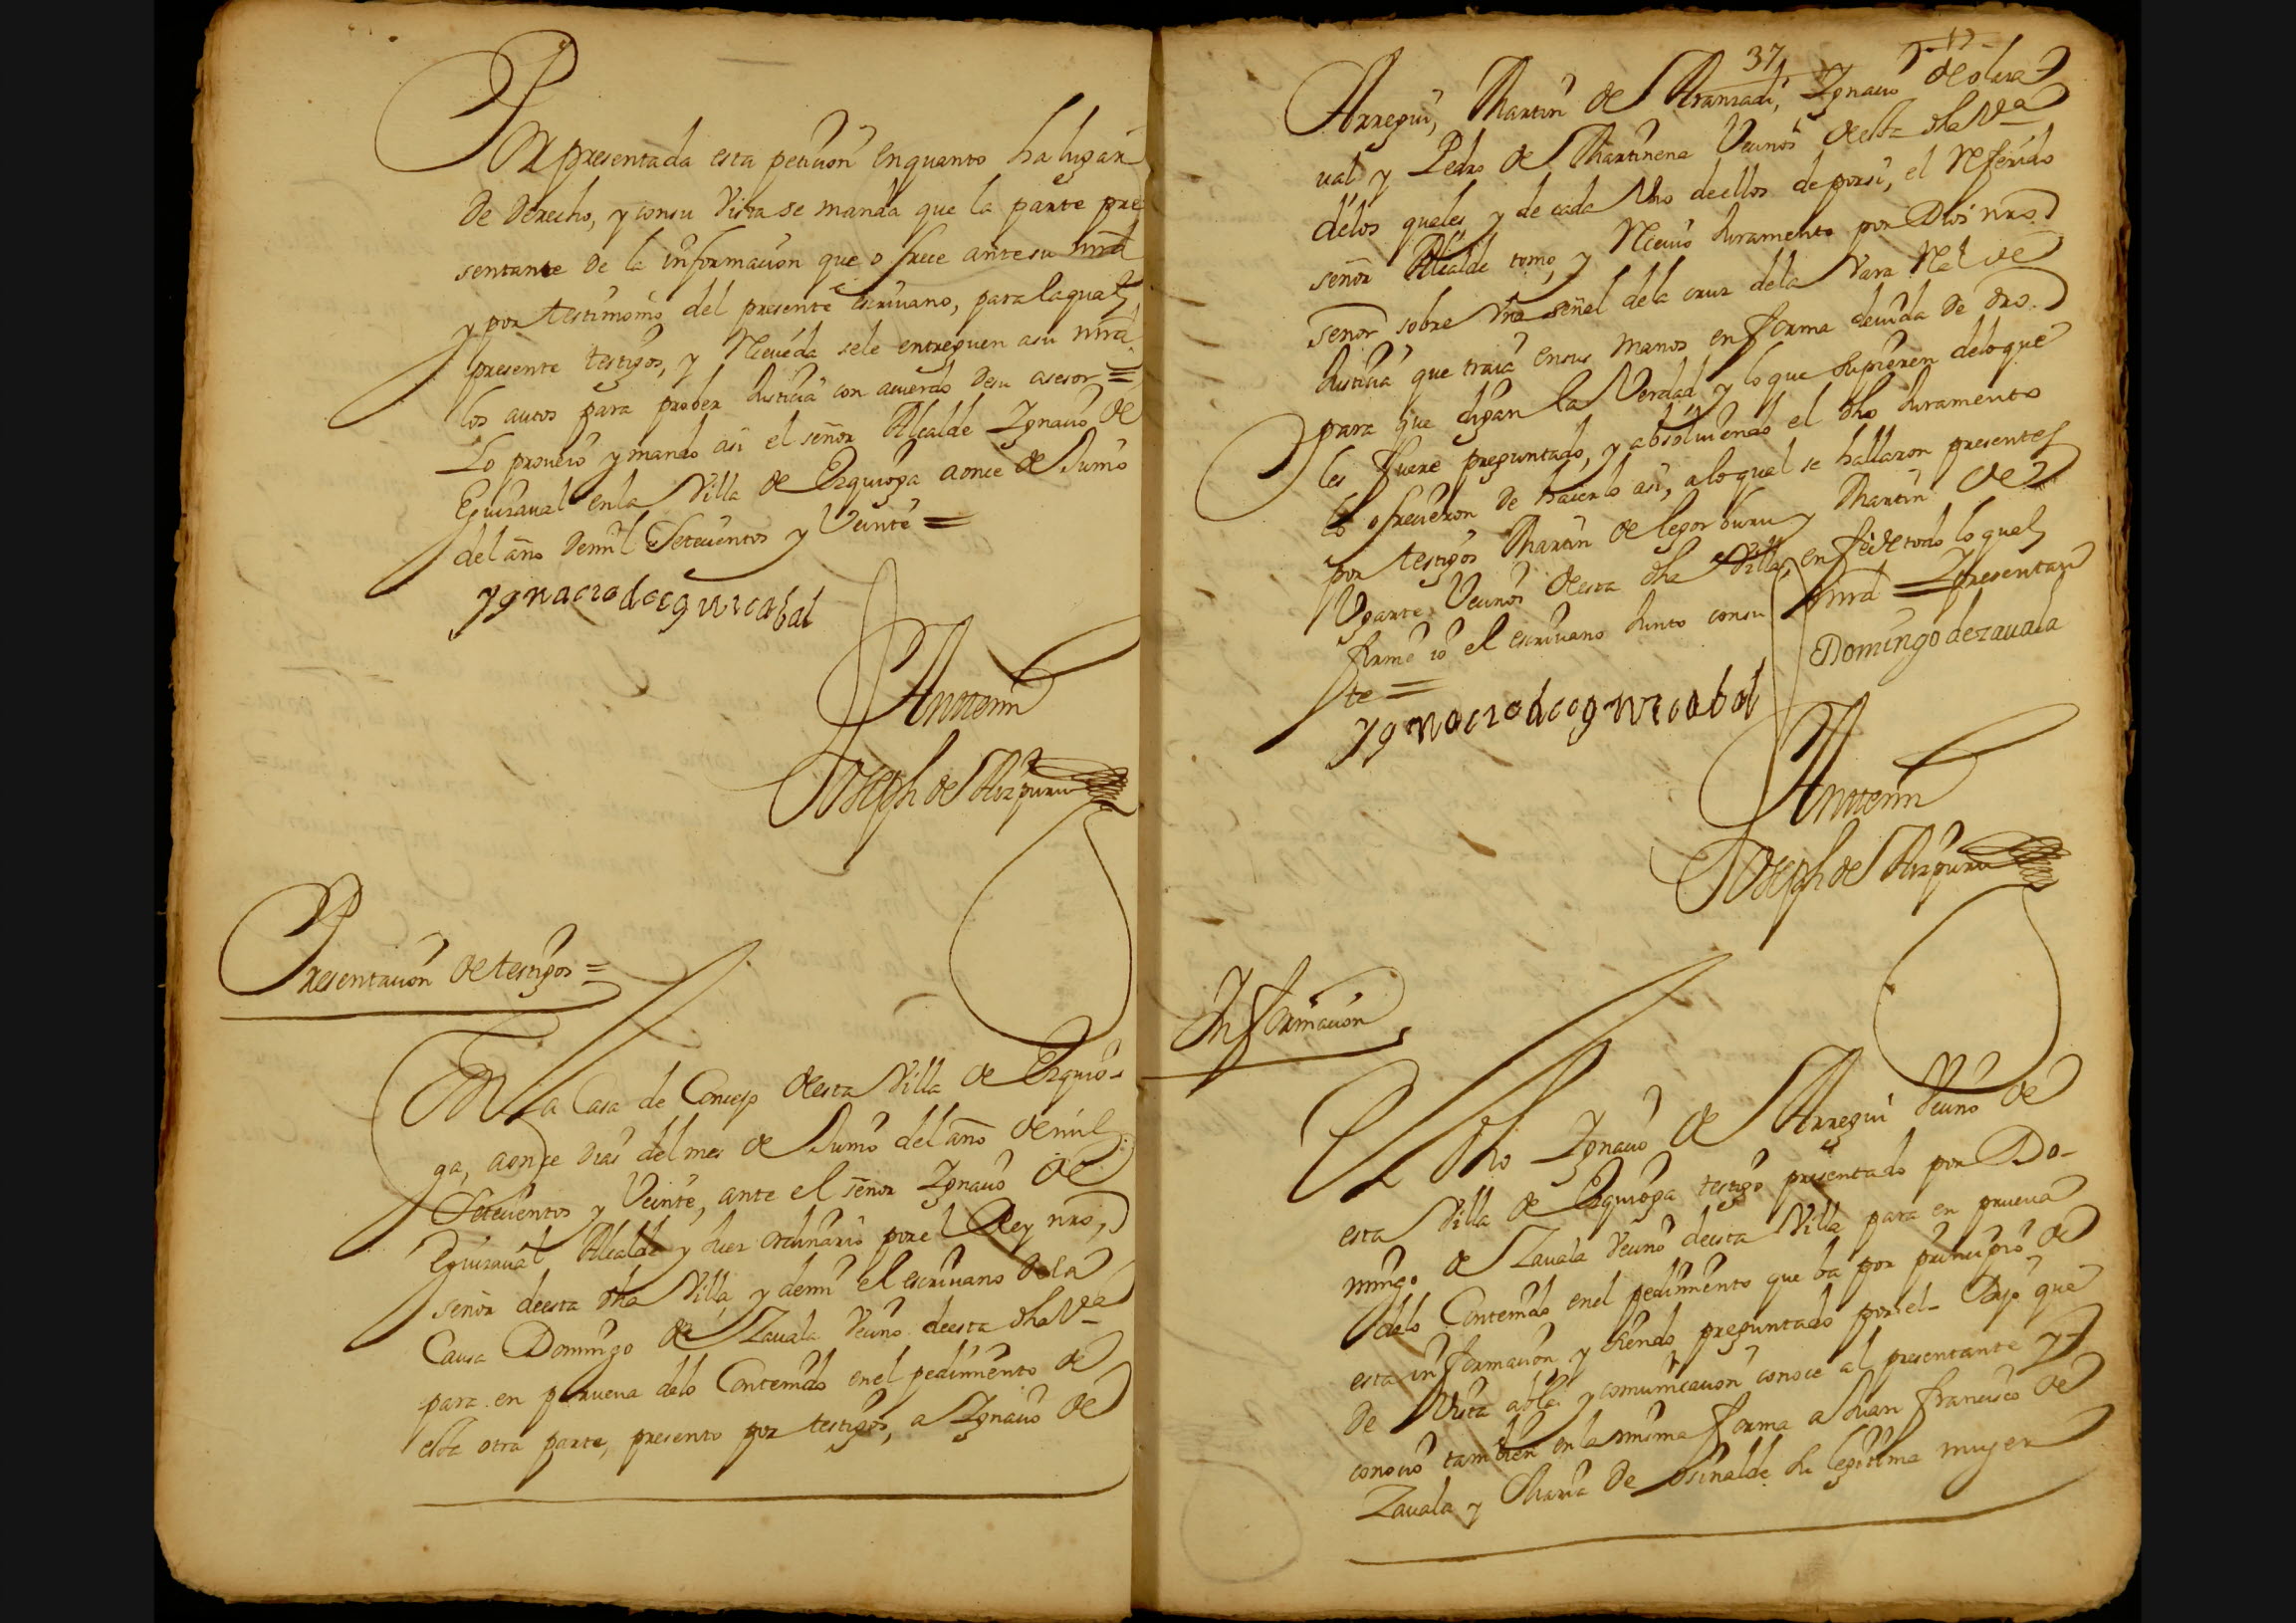 Por presentada esta peticion en quanto ha lugar
de derecho, y con su vista se manda que la parte pre
sentante de la informacion que ofrece ante su mrd
y por testimonio del presente escriuano, para la qual
presente testigos, y Reciuida se le entreguen a su mrd
los autos para prober Justicia con acuerdo de su asesor =
Lo proueio y mando asi el señor Alcalde Ignacio de
Eguizaual en la Villa de Ezquioga a once de Junio
del año de mil Setecientos y Veinte =
ygnacio de eguicabal
Ante mi
Joseph de Aizpuru
Presentacion de testigos =
En la Casa de Concejo desta Villa de Ezquio-
ga, a once dias del mes de Junio del año de mil
Setecientos y Veinte, ante el señor Ignacio de
Eguizaual Alcalde y Juez ordinario por el Rey nro,
señor de esta dha Villa, y de mi el escriuano de la
Causa Domingo de Zauala Vecino de esta dha Va
para en prueua delo Contenido en el pedimiento de
esta otra parte, presento por testigos, a Ignacio de
37
Arregui, Martin de Aranzadi, Ignacio de olaza
ual y Pedro de Martinena Vecinos desta dha Va
delos quales, y de cada Vno de ellos de por si, el Referido
señor Alcalde tomo, y Reciuio Juramento por Dios nro
señor sobre Vna señal dela cruz dela Vara Rel de
Justicia que traia en sus manos en forma deuida de dro
para que digan la Verdad y lo que supieren delo que
les fuere preguntado, y absoluiendo el dho Juramento
lo ofrecieron de hacerlo asi, alo qual se hallaron presentes
por testigos Martin de legorburu y Martin de
Vgarte Vecinos desta dha Villa, en fe de todo lo qual
firme io el escriuano Junto con su mrd = Y presentan
te =
Domingo de zauala
ygnacio de eguicabal
Ante mi
Joseph de Aizpuru
Informacion
El dho Ignacio de Arregui Vecino de
esta Villa de Ezquioga testigo presentado por Do-
mingo de Zauala Vecino de esta Villa para en prueua
delo Contenido en el pedimiento que ba por principio de
esta informacion y siendo preguntado por el- Dijo que
de Vista abla y comunicacion conoce al presentante y
conocio tambien en la misma forma a Juan francisco de
Zauala y Maria de osinalde su legitima muger